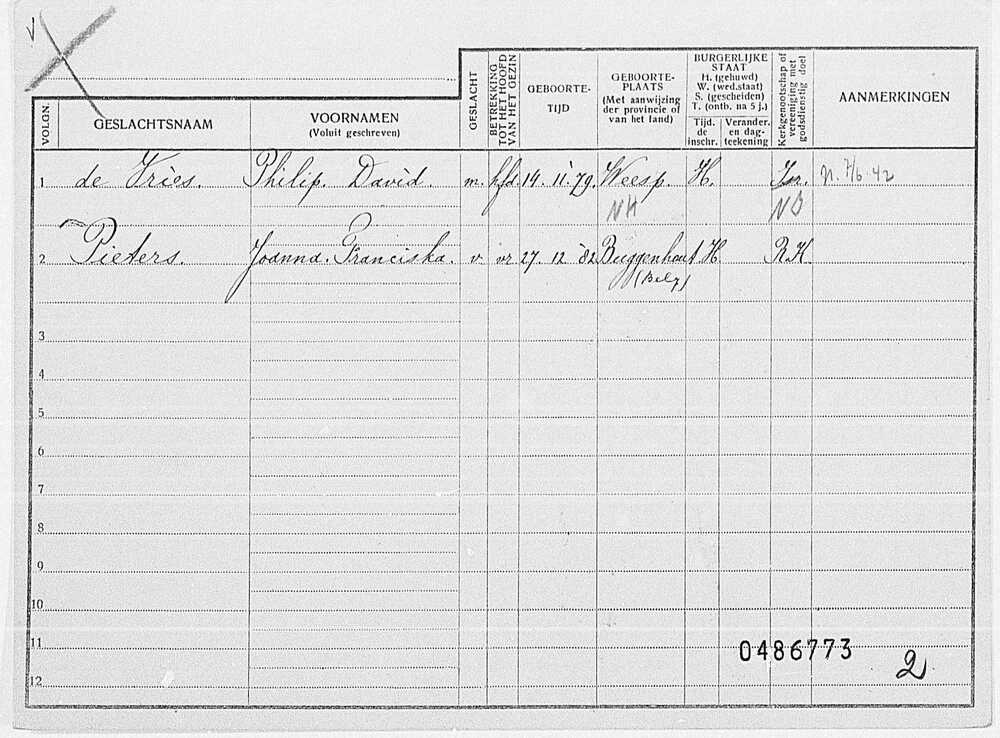 VOLGN.
GESLACHTSNAAM
VOORNAMEN
(Voluit geschreven)
GESLACHT
BETREKKING
TOT HET HOOFD
VAN HET GEZIN
GEBOORTE-
TIJD
GEBOORTE-
PLAATS
(Met aanwijzing
der provincie of
van het land)
BURGERLIJKE
STAAT
H. (gehuwd)
W. (wed.staat)
S. (gescheiden)
T. (ontb. na 5 j.)
Tijd.
de
inschr.
Verander.
en dag-
teekening
Kerkgenootschap of
vereeniging met
godsdienstig doel
AANMERKINGEN
1 de Vries. Philip. David. m. hfd. 14. 11. 79. Weesp. H. Isr. N. 7/6 42
NH
2 Pieters. Joanna. Franciska. v. vr 27. 12 '82 Buggenhout H R.K
(Belg)
3
4
5
6
7
8
9
10
11
0486773
2
12